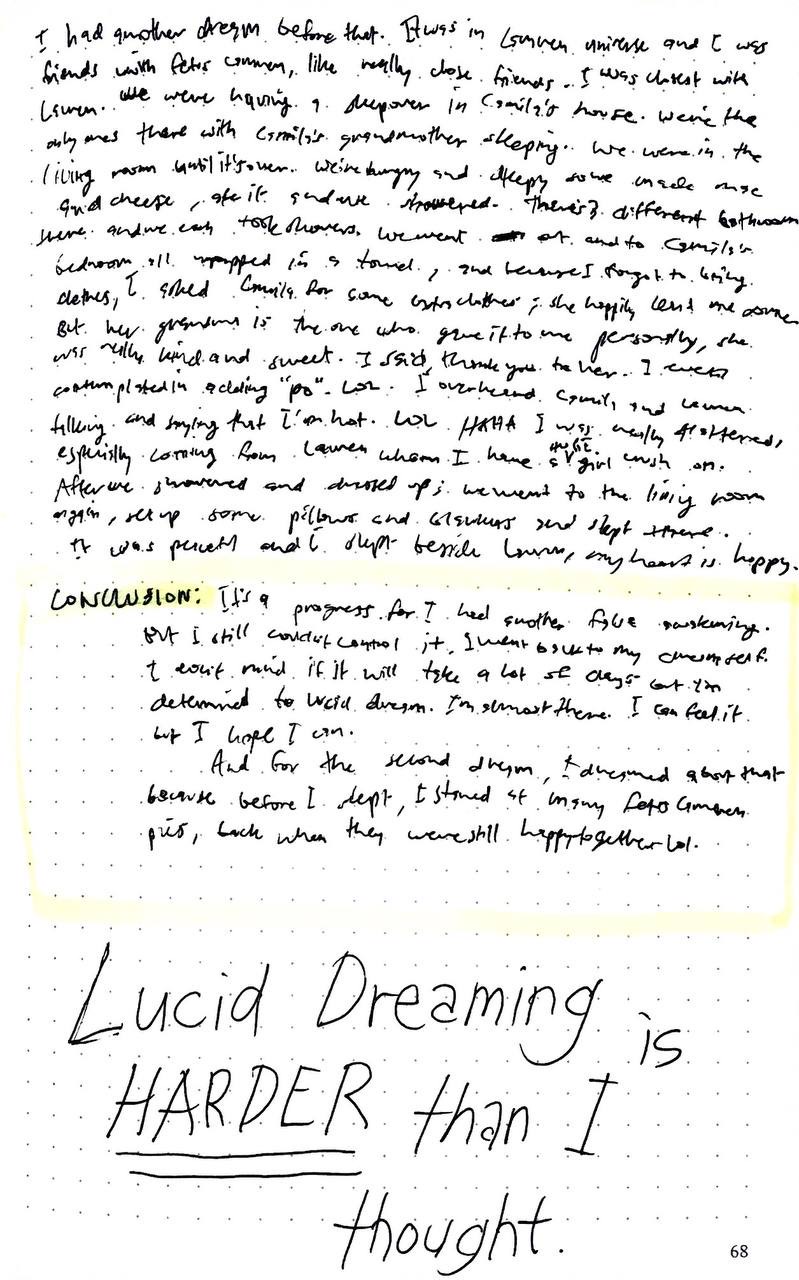 I had another dream before that. It was in Camren universe and I was
friends with fetus camren, like really close friends. I was closest with
Lauren. We were having a sleepover in Camila's house. We're the
only ones there with Camila's grandmother sleeping. We were in the
living room until it's over. We're hungry and sleepy some made mac
and cheese, ate it and we showered. There's 3 different bathroom
there and we each took showers. We went out and to Camila's
bedroom all wrapped in a towel, and because I forgot to bring
clothes, I asked Camila for some extra clothes; she happily lend me some
But her grandma is the one who gave it to me personally, she
was really kind and sweet. I said, thank you to her. I even
contemplated in adding "po". LOL. I overheard Camila and Lauren
talking and saying that I'm hot. LOL HAHA I was really flattered,
especially coming from Lauren whom I have a girl crush on.
After we showered and dressed up; we went to the living room
again, set up some pillows and blankets and slept there.
It was peaceful and I slept beside Lauren, my heart is happy.
CONCLUSION: It's a progress for I had another false awakening.
But I still couldn't control it. I went back to my dream self.
I won't mind if it will take a lot of days but I'm
determined to lucid dream. I'm almost there. I can feel it
but I hope I can.
And for the second dream, I dreamed about that
because before I slept, I stared at many fetus Camren
pics, back when they were still happy together lol.
Lucid Dreaming is
HARDER than I
thought.
68